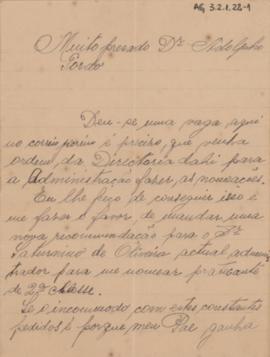 AG 3.2.1.22-1
Muito presado Dr. Adolpho
Gordo
Deu-se uma vaga aqui
no correio porem é preciso, que venha
ordem da Directoria dahi para
a Administração fazer, as nomeações.
Eu lhe peço de conseguir isso é
me fazer o favor, de mandar uma
nova recommendação para o Sr.
Saturnino de Oliveira actual adminis
trador para me nomear praticante
de 2ª classe.
Se o incommodo com estes constantes
pedidos é porque meu Pae ganha